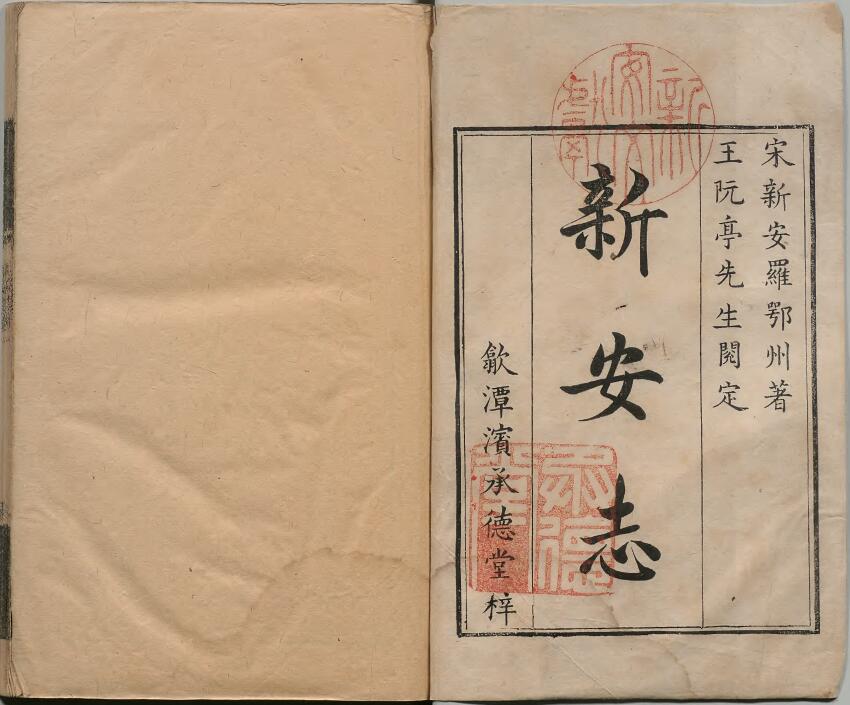 宋新安羅鄂州著
王阮亭先生閱定
新安志
歙潭濱承德堂梓
承德